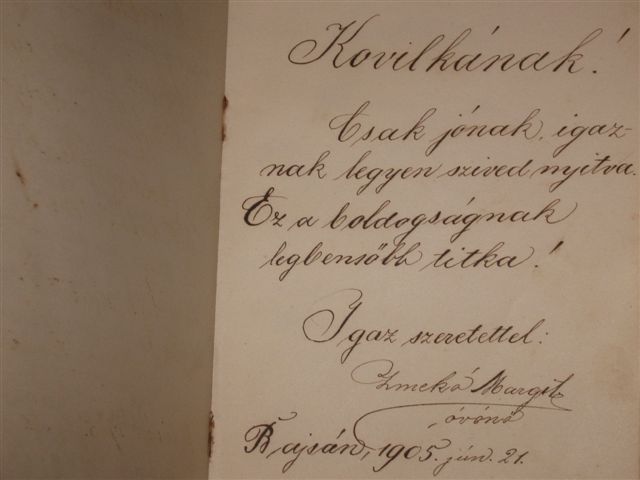 Kovilkának!
Csak jónak, igaz-
nak legyen szived nyitva.
Ez a boldogságnak
legbensőbb titka!
Igaz szeretettel:
Zmekó Margit
óvónő
Bajsán, 1905. jún. 21.